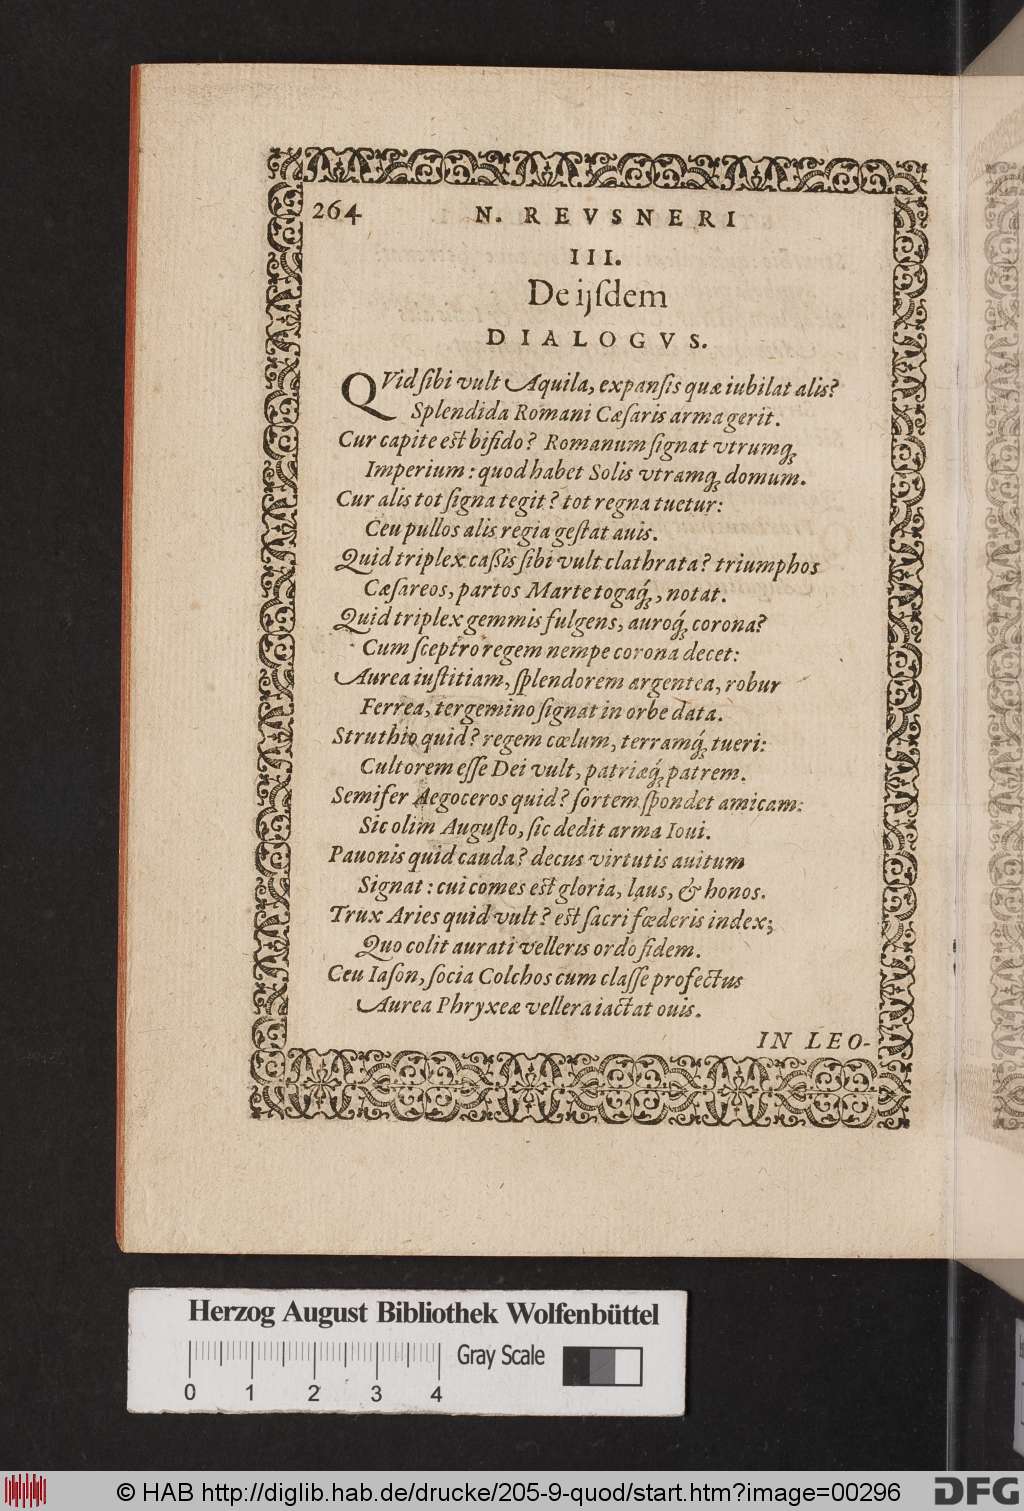 264 N. REVSNERI
III.
De ijſdem
DIALOGVS.
QVid ſibi vult Aquila, expanſis quæ iubilat alis?
Splendida Romani Cæſaris arma gerit.
Cur capite eſt bifido? Romanum ſignat vtrumq́;
Imperium: quod habet Solis vtramq́; domum.
Cur alis tot ſigna tegit? tot regna tuetur:
Ceu pullos alis regia geſtat auis.
Quid triplex caßis ſibi vult clathrata? triumphos
Cæſareos, partos Marte togaq́;, notat.
Quid triplex gemmis fulgens, auroq́; corona?
Cum ſceptro regem nempe corona decet:
Aurea iuſtitiam, ſplendorem argentea, robur
Ferrea, tergemino ſignat in orbe data.
Struthio quid? regem cœlum, terramq́; tueri:
Cultorem eſſe Dei vult, patriæq́; patrem.
Semifer Aegoceros quid? ſortem ſpondet amicam:
Sic olim Auguſto, ſic dedit arma Ioui.
Pauonis quid cauda? decus virtutis auitum
Signat: cui comes eſt gloria, laus, & honos.
Trux Aries quid vult? eſt ſacri fœderis index;
Quo colit aurati velleris ordo fidem.
Ceu Iaſon, ſocia Colchos cum claſſe profectus
Aurea Phryxeæ vellera iactat ouis.
IN LEO-
Herzog August Bibliothek Wolfenbüttel
Gray Scale
0 1 2 3 4
© HAB http://diglib.hab.de/drucke/205-9-quod/start.htm?image=00296
DFG